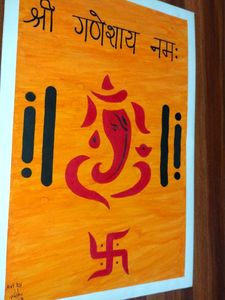 श्री गणेशाय नमः
Art by